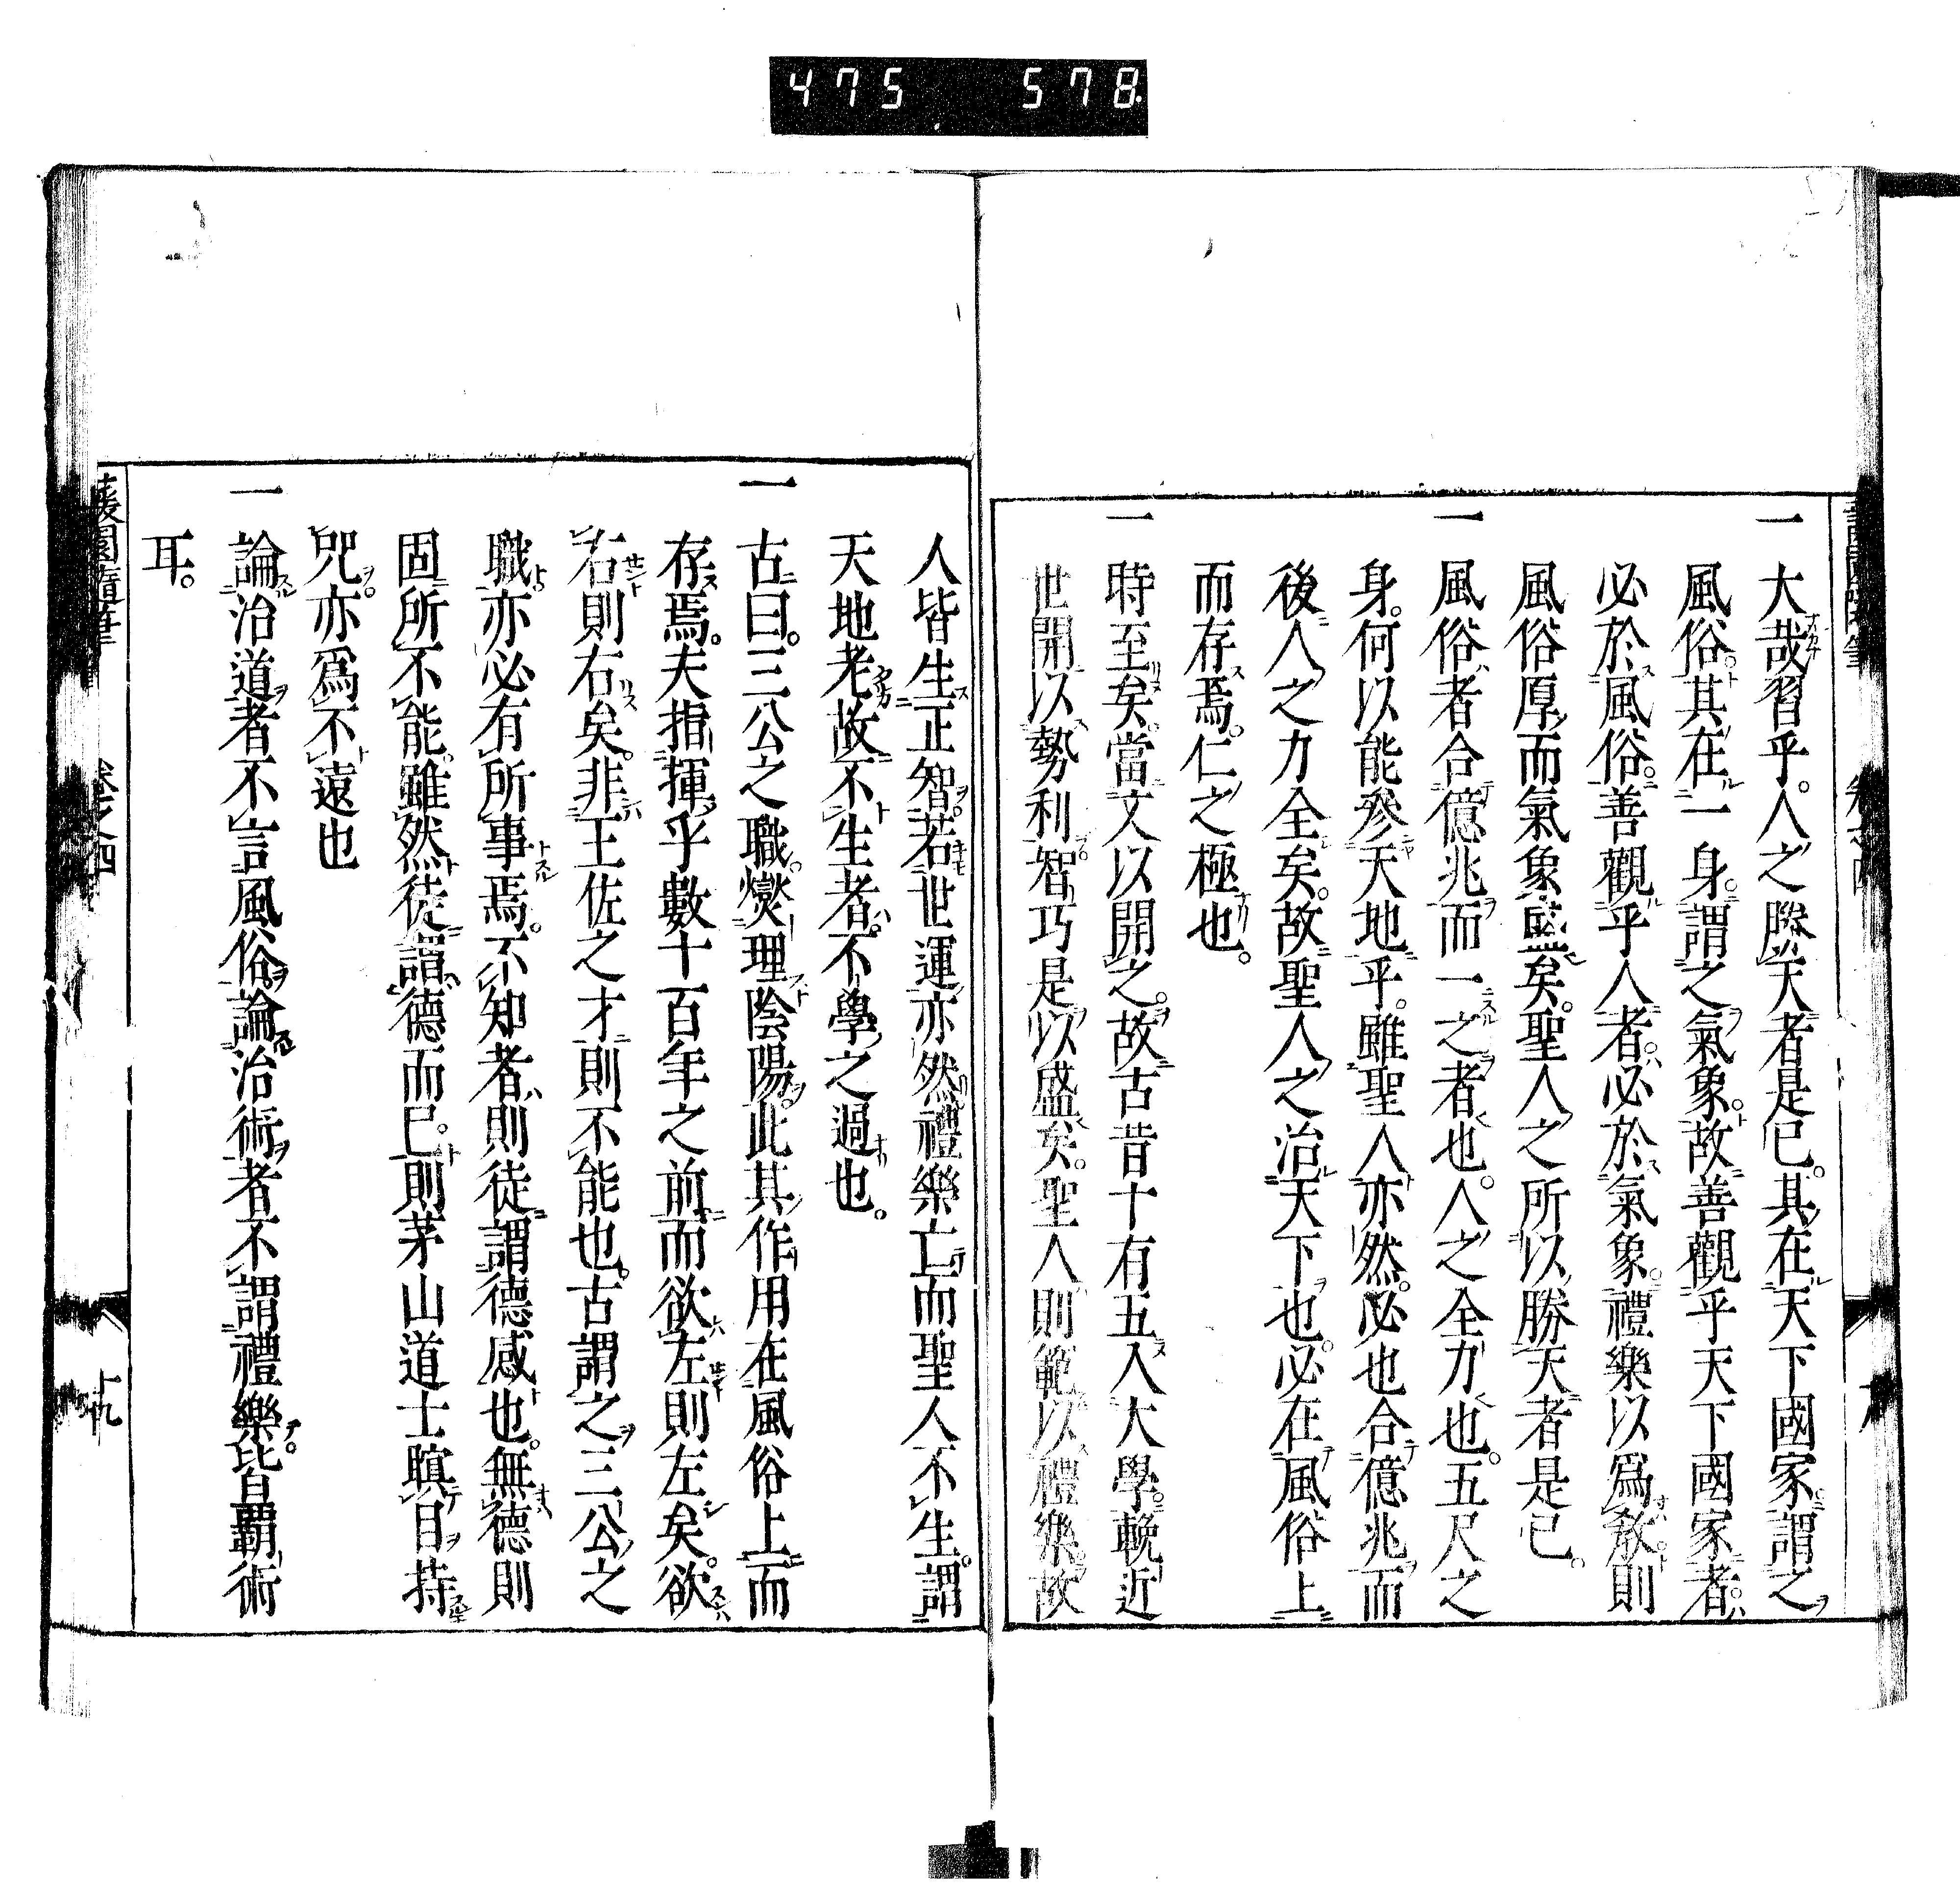 475 578
一大哉習乎。人之勝天者是已。其在天下國家謂之
風俗。其在一身。謂之氣象。故善觀乎天下國家者。
必於風俗。善觀乎人者。必於氣象。禮樂以爲教。則
風俗厚而氣象盛矣。聖人之所以勝天者是已。
一風俗者合億兆而一之者也。人之全力也。五尺之
身。何以能參天地乎。雖聖人亦然。必也合億兆而
後人之力全矣。故聖人之治天下也。必在風俗上
而存焉。仁之極也。
一時至矣。當文以開之。故古昔十有五入大學。輓近
世開以勢利智巧是以盛矣。聖人則範以禮樂。故
人皆生正智。若世運亦然。禮樂亡而聖人不生。謂
天地老故不生者。不學之過也。
一古曰。三公之職。爕理陰陽。此其作用在風俗上而
存焉。夫指揮乎數十百年之前而欲左則左矣。欲
右則右矣。非王佐之才則不能也。古謂之三公之
職。亦必有所事焉。不知者則徒謂德感也。無德則
固所不能。雖然徒謂德而已。則茅山道士瞋目持
咒。亦爲不遠也
一論治道者不言風俗。論治術者不謂禮樂。皆霸術
耳。
蘐園隨筆 卷之四 十九